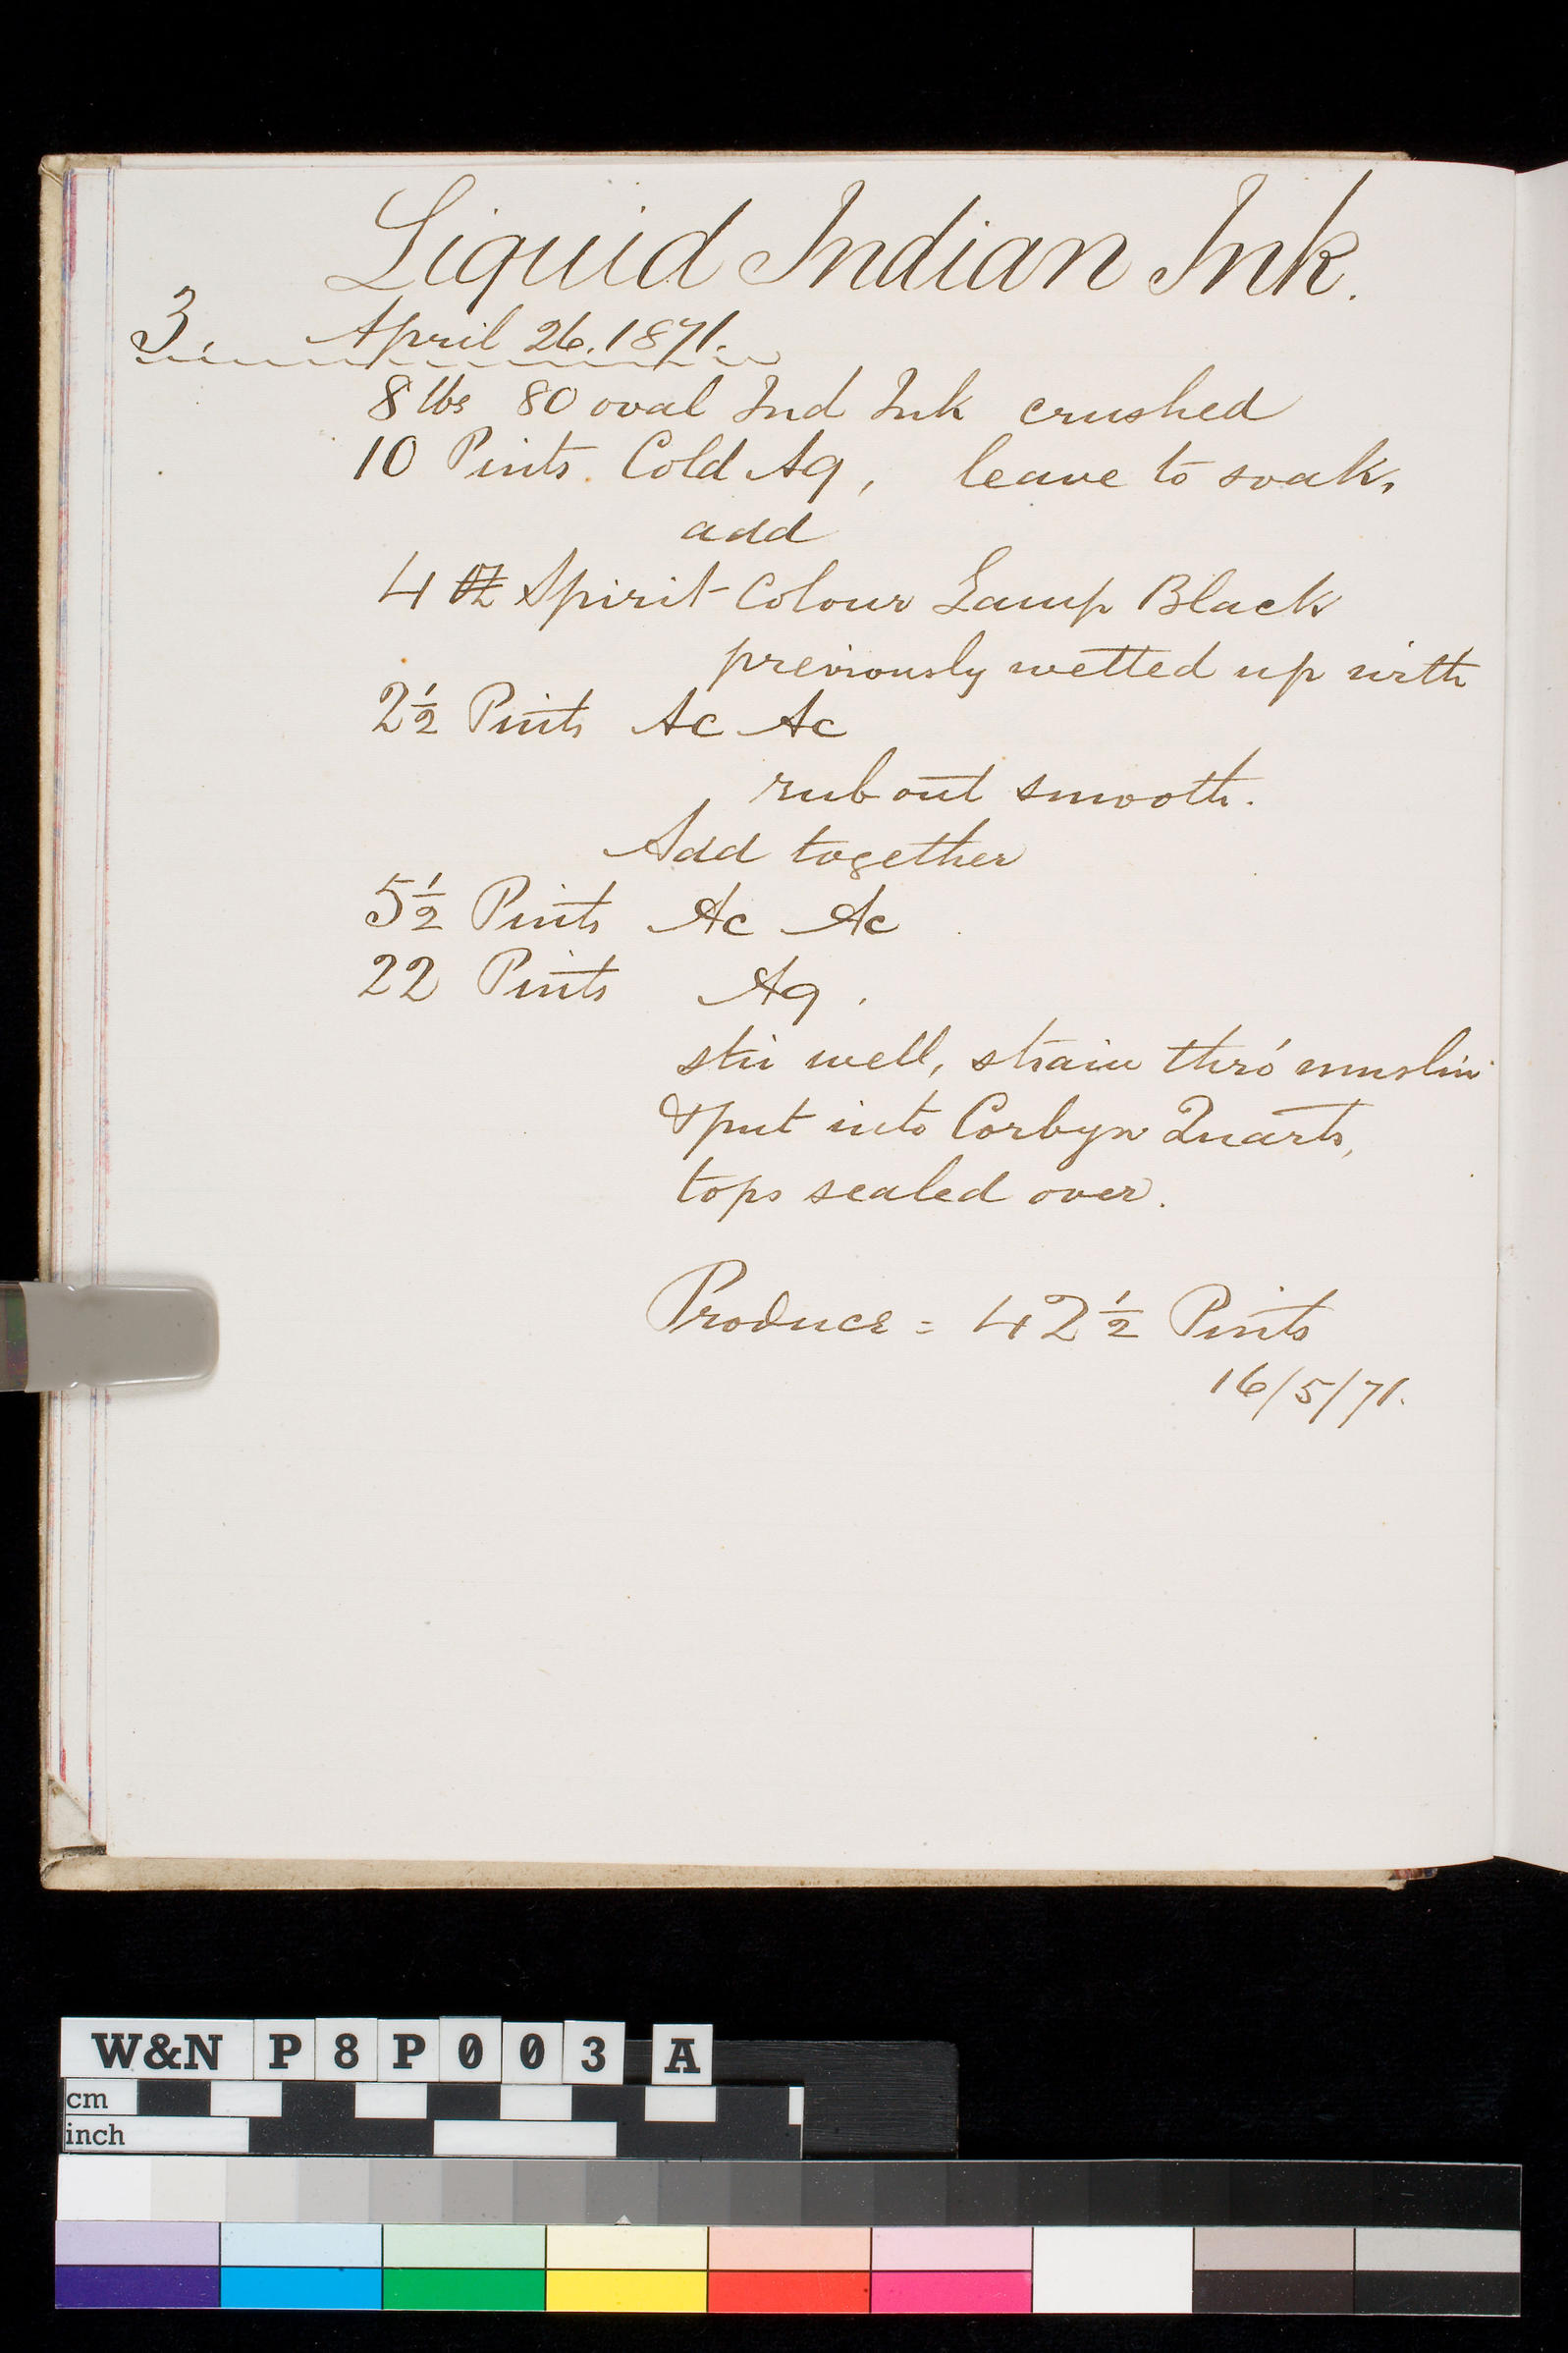 Liquid Indian Ink.
3. April 26. 1871.
8 lbs 80 oval Ind Ink crushed
10 Pints. Cold Aq, leave to soak,
add
4 oz Spirit Colour Lamp Black
previously wetted up with
2½ Pints Ac Ac
rub out smooth.
Add together
5½ Pints Ac Ac
22 Pints Aq.
stir well, strain thro' muslin
& put into Corbyn Quarts,
tops sealed over.
Produce = 42½ Pints
16/5/71.
W&N P8P003 A
cm
inch